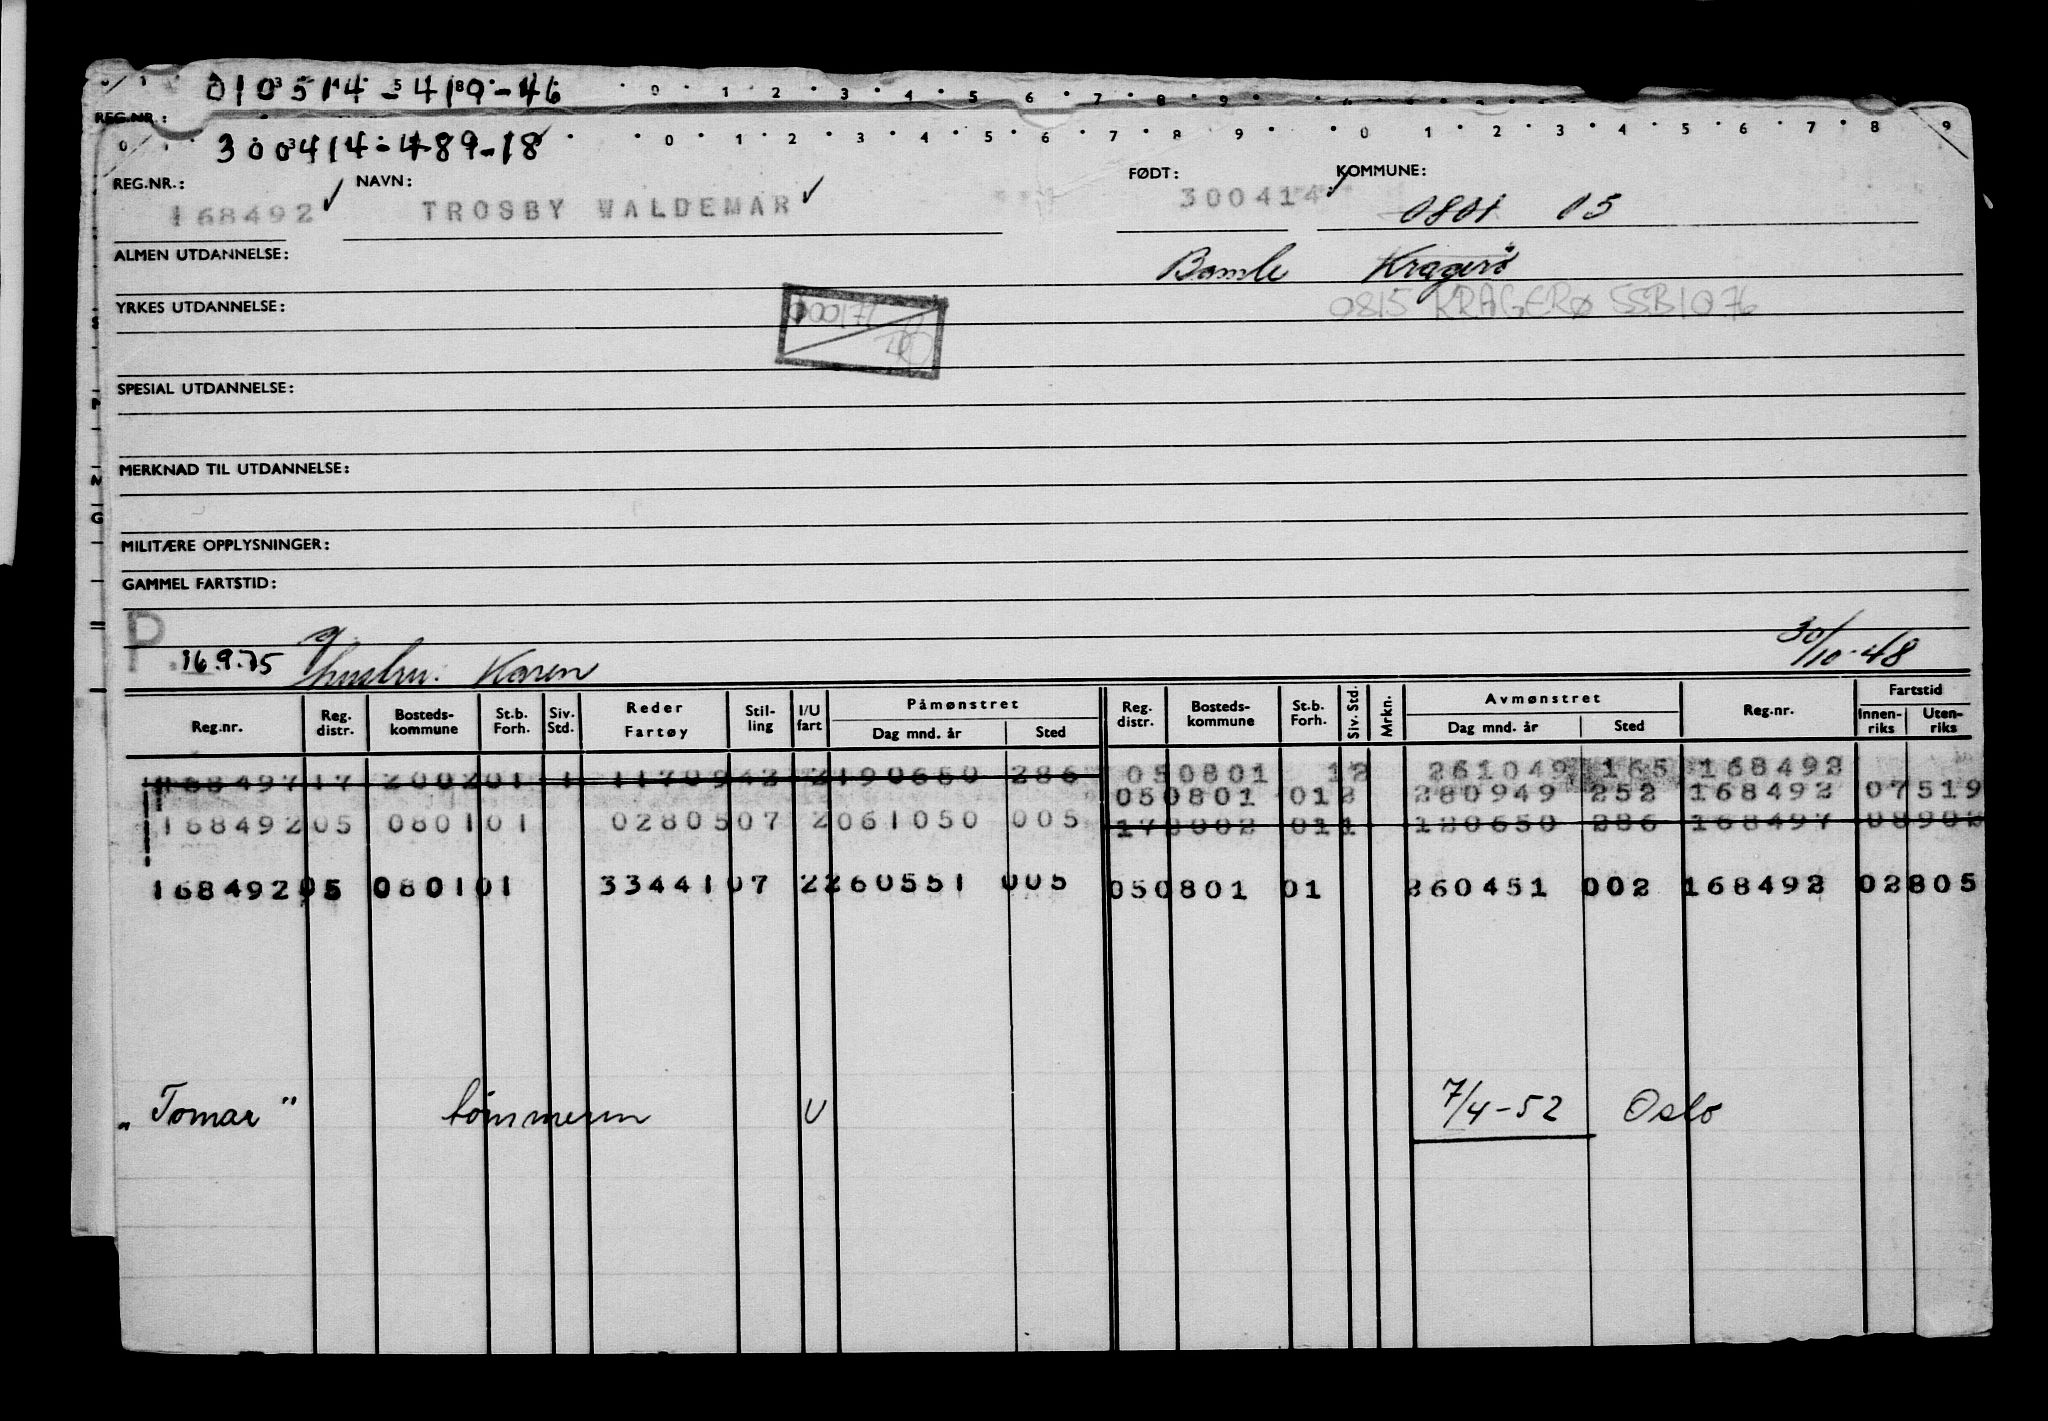 010514-41989-46
0 1 2 3 4 5 6 7 8 9
REG.NR.:
300414-489-18
0 1 2 3 4 5 6 7 8 9 0 1 2 3 4 5 6 7 8 9
REG.NR.: NAVN: FØDT: KOMMUNE:
168492 ✓ TROSBY WALDEMAR ✓ 300414 ✓ 0801 05
ALMEN UTDANNELSE: Bamle Kragerö
YRKES UTDANNELSE: 0815 KRAGERØ SSB1076
SPESIAL UTDANNELSE:
MERKNAD TIL UTDANNELSE:
MILITÆRE OPPLYSNINGER:
GAMMEL FARTSTID:
P. 16.9.75 g hustru: Karen 30/10-48
Reg.nr. Reg. distr. Bosteds-kommune St.b. Forh. Siv. Std. Reder Fartøy Stil-ling I/U fart Påmønstret Dag mnd. år Sted Reg. distr. Bosteds-kommune St.b. Forh. Siv. Std. Mrkn. Avmønstret Dag mnd. år Sted Reg.nr. Fartstid Innen-riks Uten-riks
168497 17 2002 01 1 11709 42 2 190650 286 05 0801 12 261049 165 168492
05 0801 01 2 280949 252 168492 07519
168492 05 0801 01 02805 07 2 061050 005 17 2002 01 1 180650 286 168497 08902
168492 05 0801 01 33441 07 2 260551 005 05 0801 01 260451 002 168492 02805
„Tomar" tömmerm U 7/4-52 Oslo